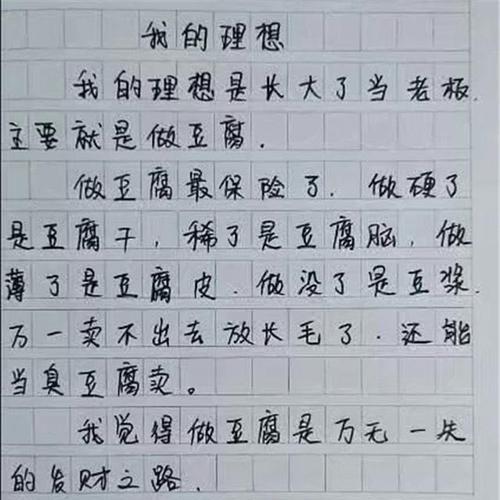 我的理想
我的理想是长大了当老板.
主要就是做豆腐.
做豆腐最保险了.做硬了
是豆腐干,稀了是豆腐脑,做
薄了是豆腐皮.做没了是豆浆.
万一卖不出去放长毛了.还能
当臭豆腐卖。
我觉得做豆腐是万无一失
的发财之路.